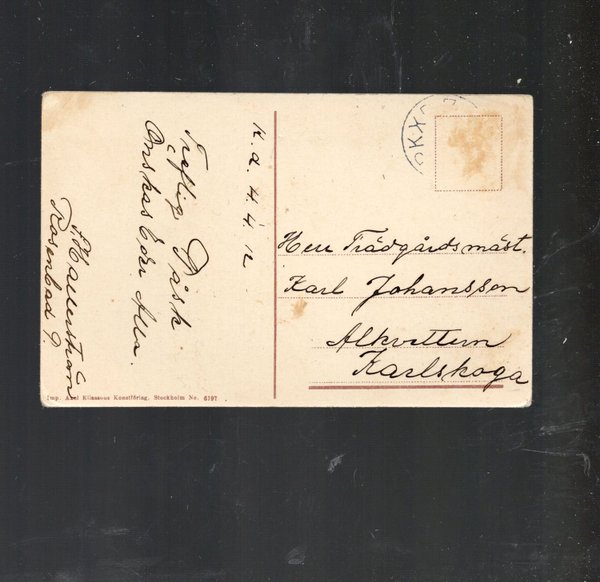 K.d. 4.4 12
Treflig Påsk
Önskas Eder Alla.
Rosenbad 9.
Herr Trädgårdsmäst.
Karl Johansson
Alkvettern
Karlskoga
Imp. Axel Eliassons Konstförlag, Stockholm No. 6197